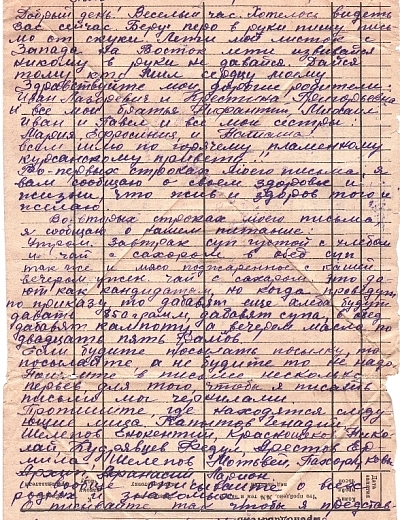 Добрый день! Веселый час Хотелось видеть
вас сейчас Беру перо в руки пишу пись
мо от скуки. Лети мой листик с
Запада на Восток лети извивайся
никому в руки не давайся. Дайся
тому кто мил сердцу моему
Здравствуйте мои дорогие родители:
Иван Назарович и Крестина Григорьевна
и все мои братья Михаил
Иван и Павел и все мои сестры:
Мария Ефросиния, и Наташа!
всем шлю по горячему пламенному
курсанскому привету!!
Во-первых строках моего письма, я
вам сообщаю о своем здоровье и
жизни, что жив и здоров того и
желаю
Во вторых строках моего письма
я сообщаю о нашем питание:
Утром. Завтрак суп густой с хлебом
и чай с сахаром в обед суп
так же и мясо поджаренное кашей
вечером ужен. чай с сахаром это да
ют как кандидатам, но когда проведут
по приказу то дабавят еще хлеба будут
давать 850 грамм, дабавят супа, в обед
дабавят кампоту а вечером масла по
двадцать пять грамов.
Если будите посылать посылку, то
посылайте а не будите то не надо
в письме несколько
перьев для того, чтобы я писать
письмо мог чернилами
Пропишите где находятся следу
ющие лица. Капытов Генадий
Шелепов Енокентий, Краскошеко Нико
лай Кудрявцев Федул, Арестов Ер
Шелепов Мотовей,
Ларион
и вообще описывайте о всех
родных и знакомых
описывайте так чтобы я представ